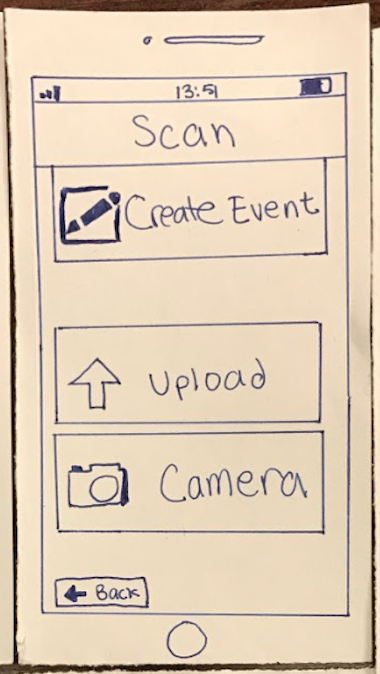 13:51
Scan
Create Event
Upload
Camera
Back